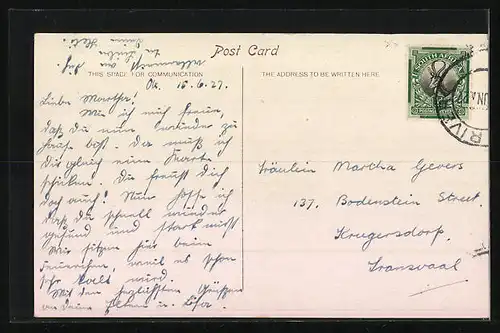 Post Card
THIS SPACE FOR COMMUNICATION
THE ADDRESS TO BE WRITTEN HERE.
SOUTH AFRICA
15.6.27.
Liebe Martha!
Wie ich mich freue,
daß du nun wieder zu
Hause bist. Da muß ich
Dir gleich eine Karte
schicken. Du freust Dich
doch auch! Nun hoffe ich
daß Du schnell wieder
gesund und stark wirst
Wir sitzen hier beim
Feuerchen, weil es schon
sehr kalt wird.
Mit den herzlichsten Grüßen
Fräulein Martha Gevers
137. Bodenstein Street.
Krugersdorp.
Transvaal